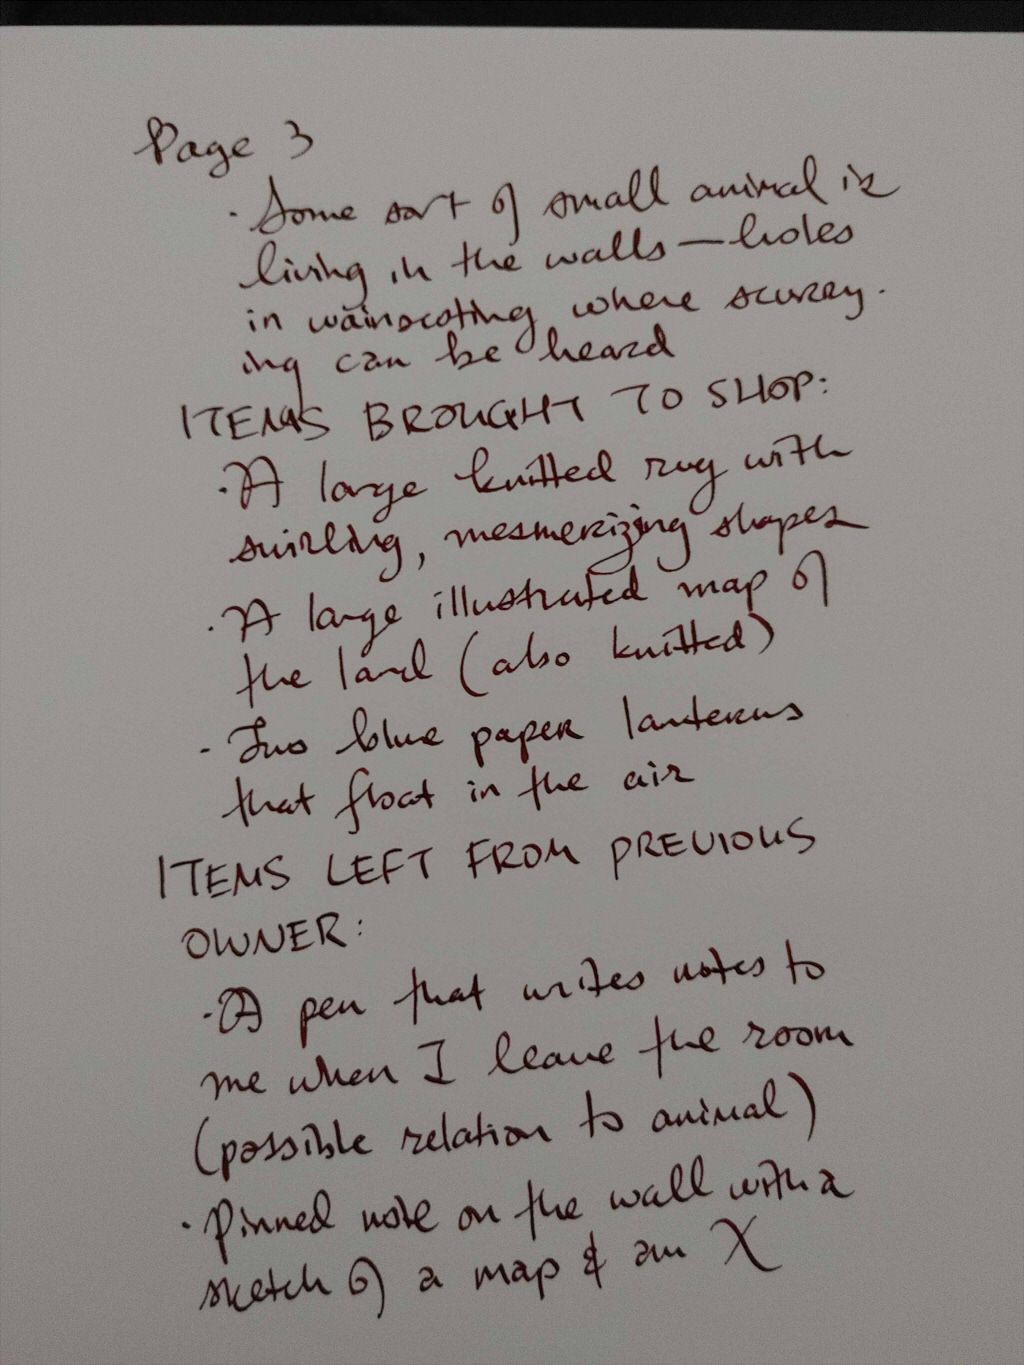 Page 3
· Some sort of small animal is
living in the walls—holes
in wainscoting where scurry-
ing can be heard
ITEMS BROUGHT TO SHOP:
· A large knitted rug with
swirling, mesmerizing shapes
· A large illustrated map of
the land (also knitted)
· Two blue paper lanterns
that float in the air
ITEMS LEFT FROM PREVIOUS
OWNER:
· A pen that writes notes to
me when I leave the room
(possible relation to animal)
· Pinned note on the wall with a
sketch of a map & an X